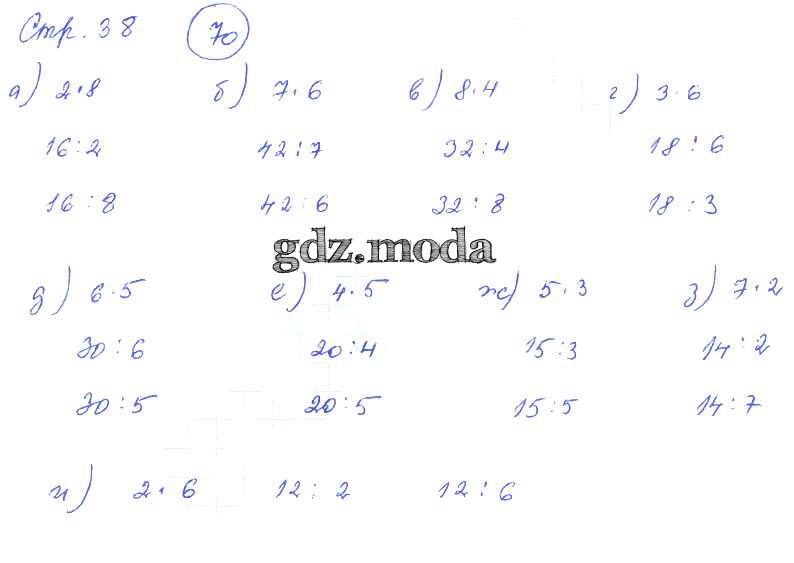 Стр. 38 70
а) 2·8 б) 7·6 в) 8·4 г) 3·6
16:2 42:7 32:4 18:6
16:8 42:6 32:8 18:3
gdz.moda
д) 6·5 е) 4·5 ж) 5·3 з) 7·2
30:6 20:4 15:3 14:2
30:5 20:5 15:5 14:7
и) 2·6 12:2 12:6